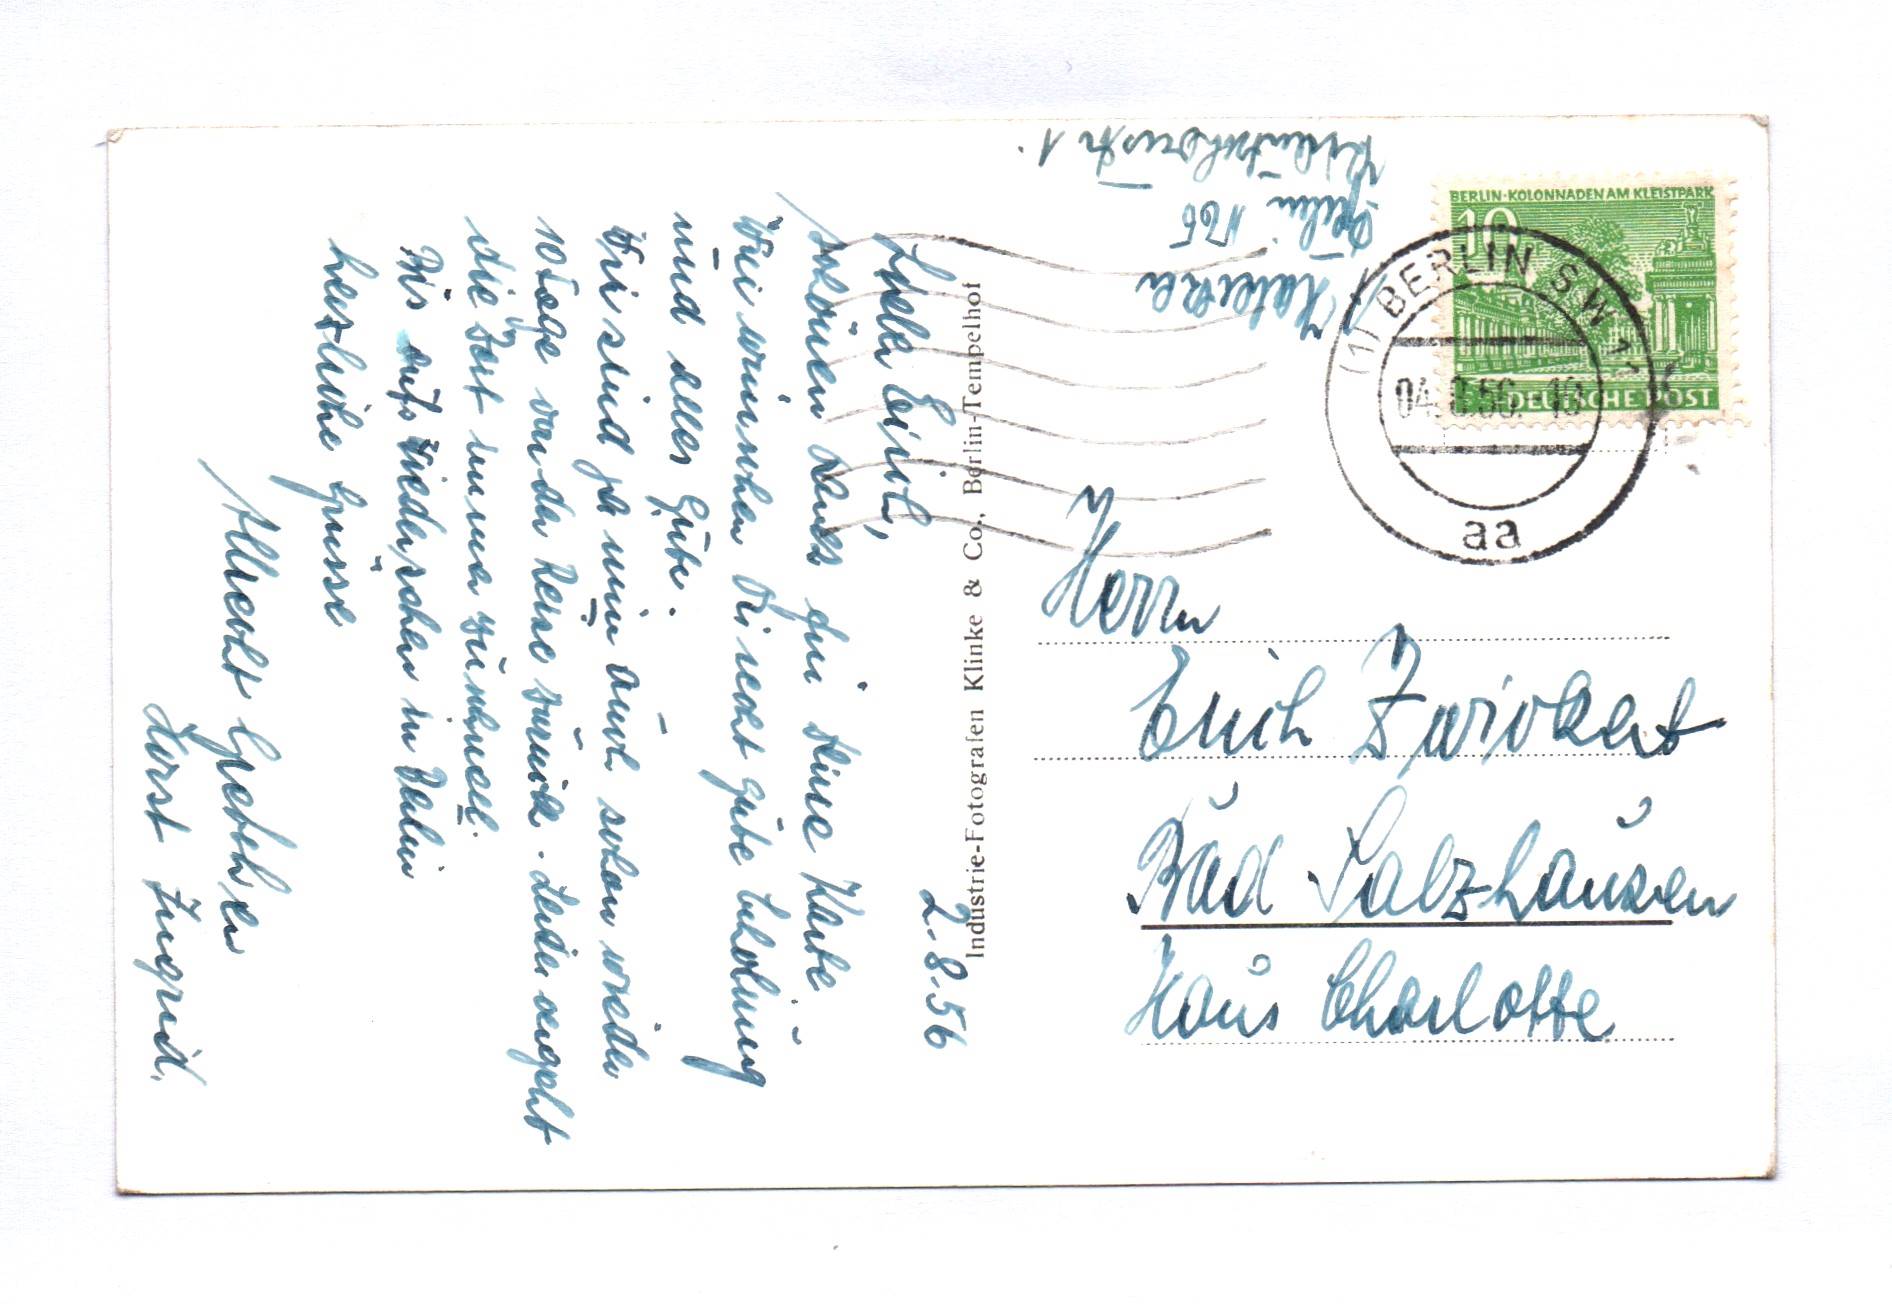 2.8.56
Lieber Erich,
schönen Dank für Deine Karte.
Wir wünschen Dir recht gute Erholung
und alles Gute.
Wir sind ja nun auch schon wieder
10 Tage von der Reise zurück. Leider vergeht
die Zeit immer zu schnell.
Bis aufs Wiedersehen in Berlin
herzliche Grüsse
Albrecht Gretchen
Horst Ingrid.
Industrie-Fotografen Klinke & Co., Berlin-Tempelhof
Berlin
BERLIN·KOLONNADEN AM KLEISTPARK
10
DEUTSCHE POST
(1) BERLIN SW 11
aa
Herrn
Erich
Bad Salzhausen
Haus Charlotte